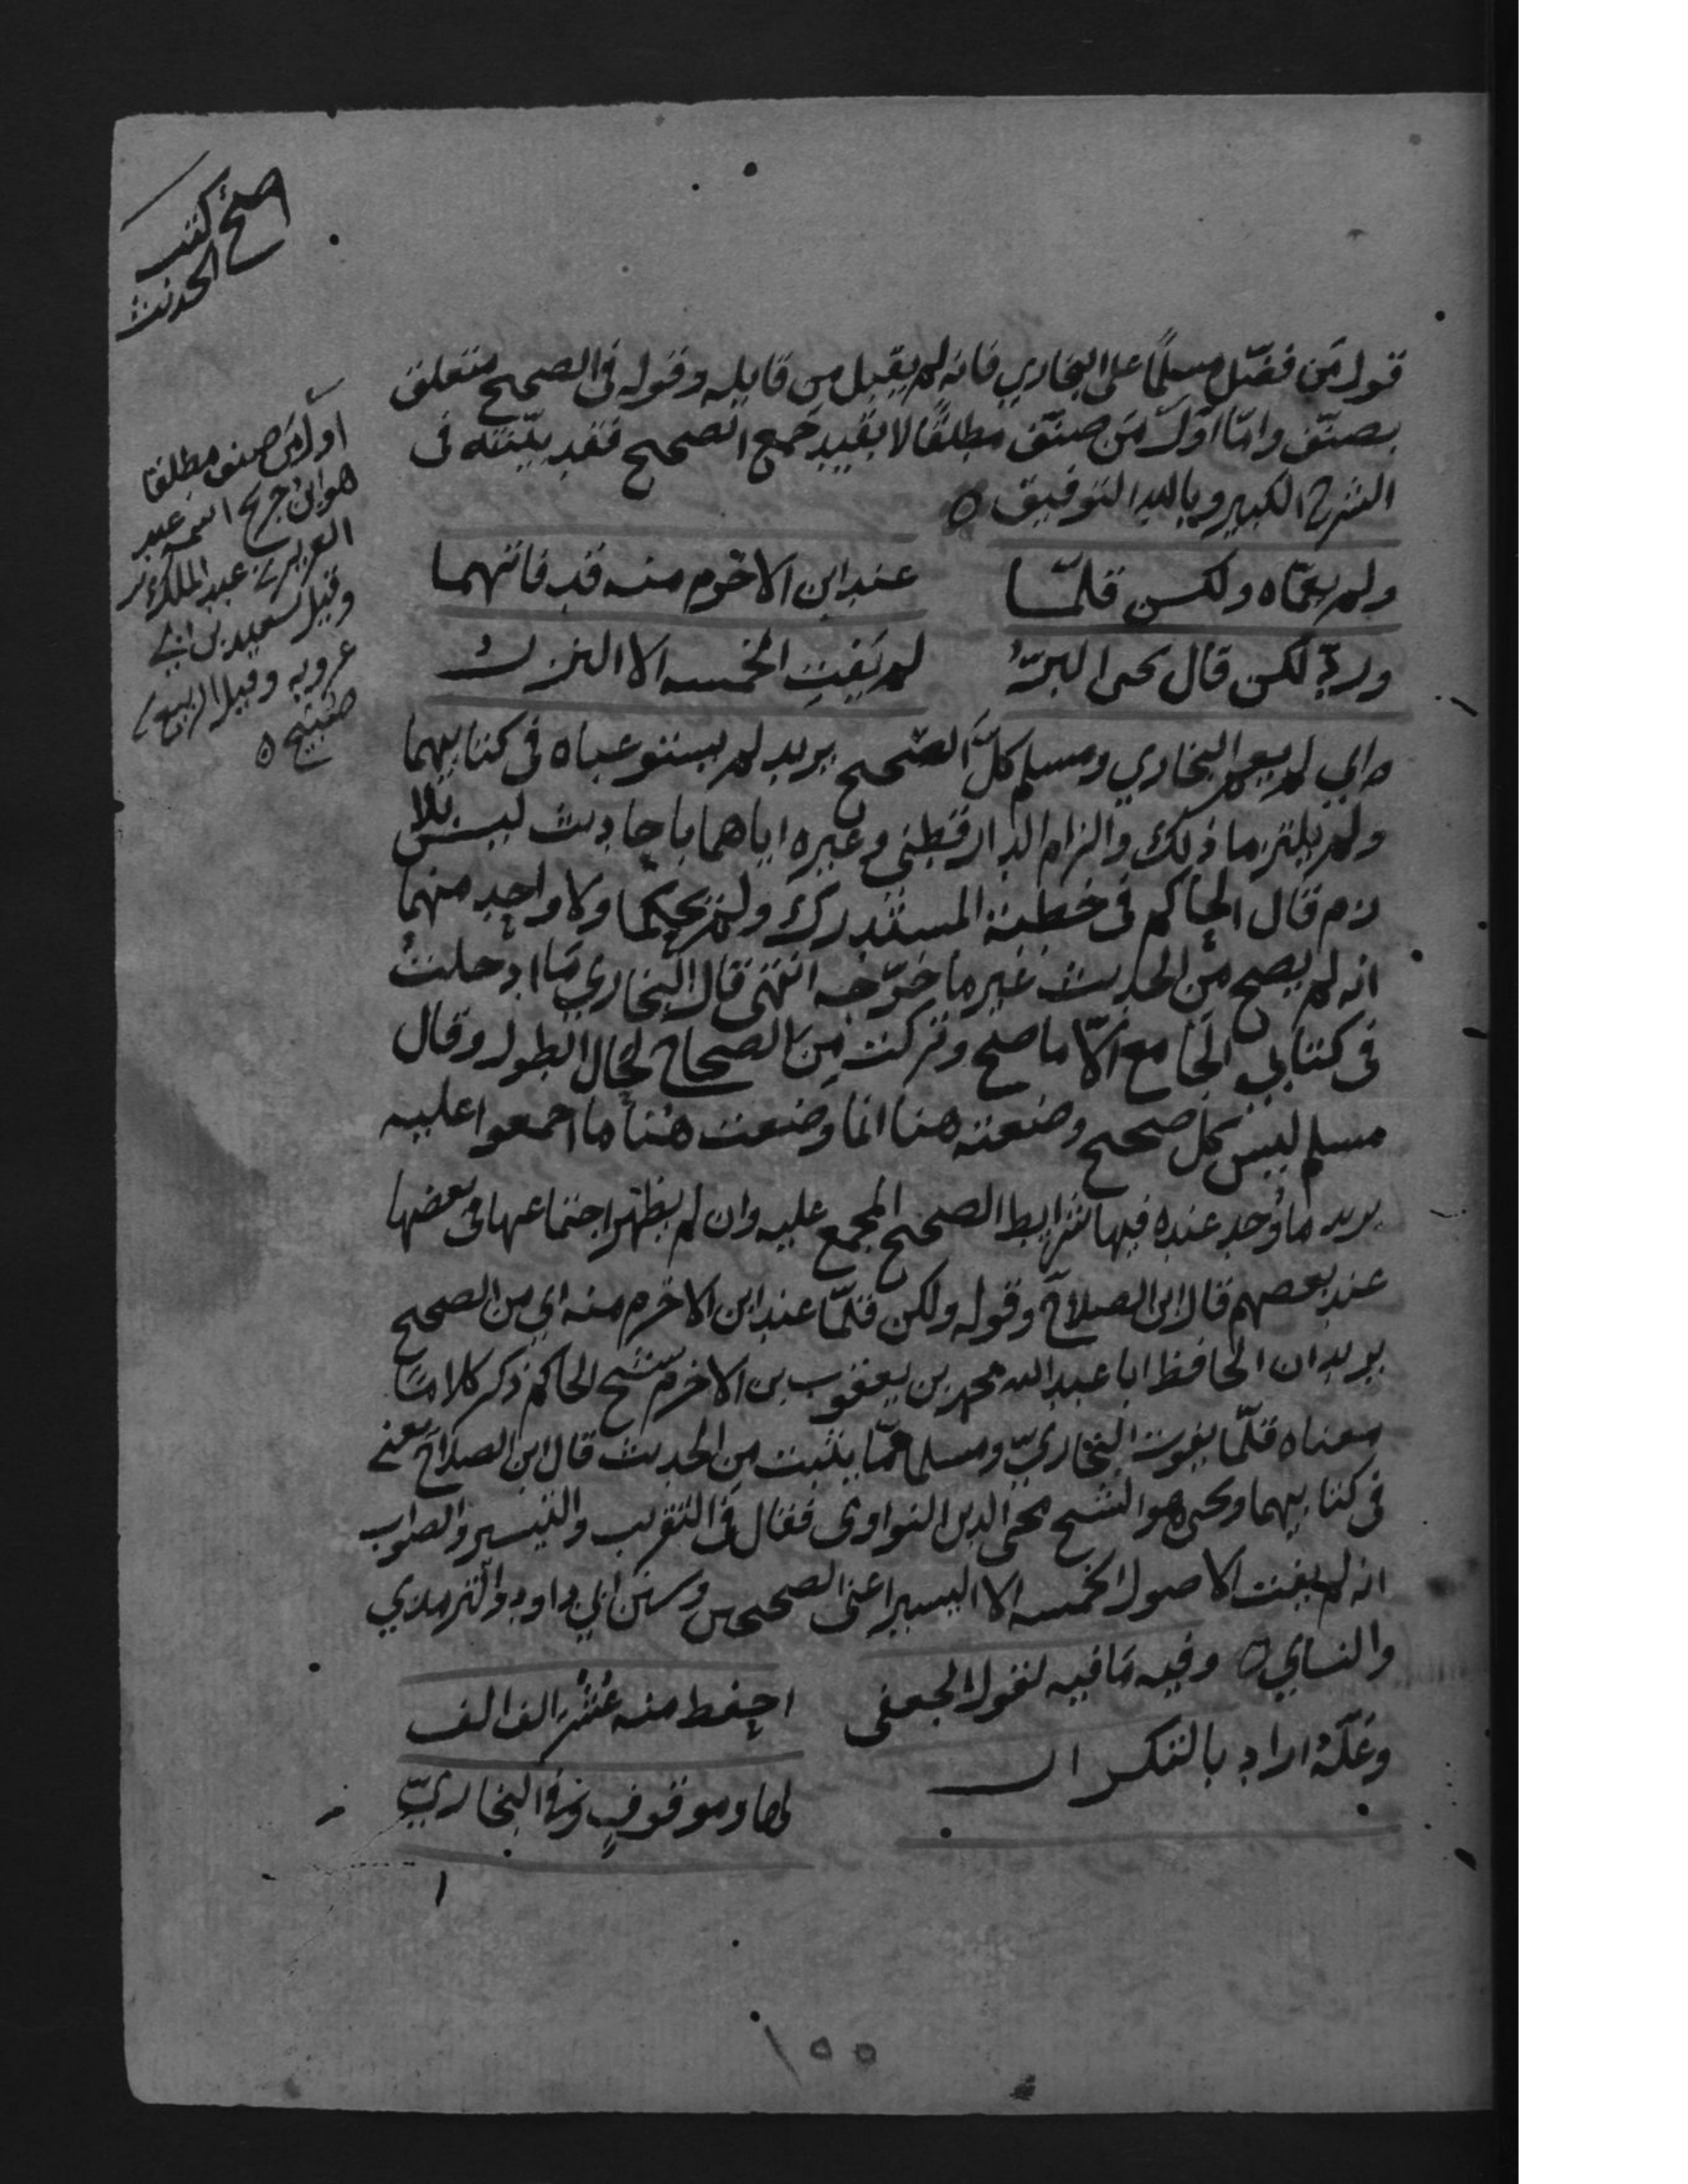 اصح كتب
الحديث
قول من فضّل مسلمًا على البخاري فانه لم يقبل من قايله وقوله فى الصحيح متعلق
بصنّف وامّا اوّل مَن صنّف مطلقًا لا بقيد جمع الصحيح فقد بيّنته فى
الشرح الكبير وبالله التوفيق ه
اول من صنف مطلقا
هو ابن جريج اسمه عبد
العزيز بن عبد الملك
وقيل سعيد بن ابي
عروبه وقيل الربيع بن
صبيح ه
ولم يعمّاه ولكن قلمّا عند ابن الاخرم منه قد فاتهما
وردّ لكن قال يحيى البرّ لم يَفُتِ الخمسه الا النزر
اي لم يعم البخاري ومسلم كلّ الصحيح يريد لم يستوعباه فى كتابيهما
ولم يلتزما ذلك والزام الدارقطني وغيره اياهما باحاديث ليس بلا
زم قال الحاكم فى خطبة المستدرك ولم يحكما ولا واحد منهما
انه لم يصح من الحديث غير ما خرّجه انتهى قال البخاري ما ادخلت
فى كتابي الجامع الّا ما صح وتركت من الصحاح لحال الطول وقال
مسلم ليس كل صحيح وضعته هنا انما وضعت هنا ما اجمعوا عليه
يريد ما وُجد عنده فيها شرايط الصحيح المجمع عليه وان لم يظهر اجتماعها فى بعضها
عند بعضهم قال ابن الصلاح وقوله ولكن قلمّا عند ابن الاخرم منه اي من الصحيح
يريد ان الحافظ ابا عبد الله محمد بن يعقوب بن الاخرم شيخ الحاكم ذكر كلاما
معناه قلّما يفوت البخاريّ ومسلما ممّا يثبت من الحديث قال ابن الصلاح يعنى
فى كتابيهما ويحيى هو الشيخ محيى الدين النواوى فقال فى التقريب والتيسير والصواب
انه لم يفت الاصول الخمسه الا اليسير اعنى الصحيحين وسنن ابي داود والترمذي
والنسايي ه وفيه ما فيه لقول الجعفى احفظ منه عُشْر الف الف
وعَلّهُ اراد بالتكرار لها وموقوفٍ وفى البخاريّ
١٥٥